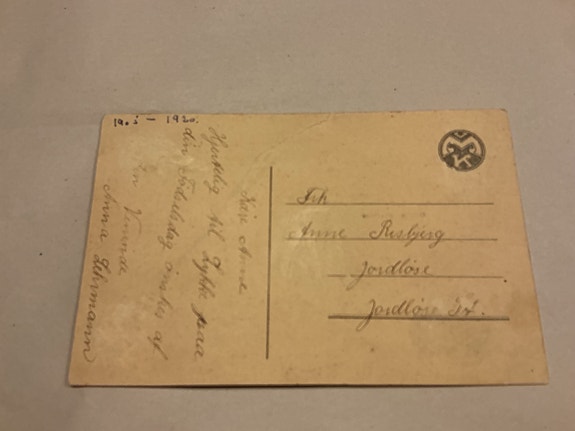 19.5 – 1920.
Kære Anne
Hjertelig til Lykke paaa
din Fødselsdag ønskes af
En Veninde
Anna Lehrmann
Frk
Anne Risbjerg
Jordløse
Jordløse St.